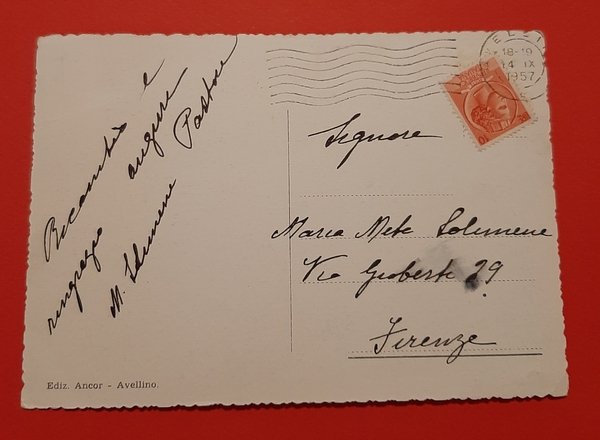 ringrazio auguri
M. Solimene Pastore
Signore
Maria Meta Solimene
Via Gioberti 29
Firenze
18-19
14 IX
1957
Ediz. Ancor - Avellino.